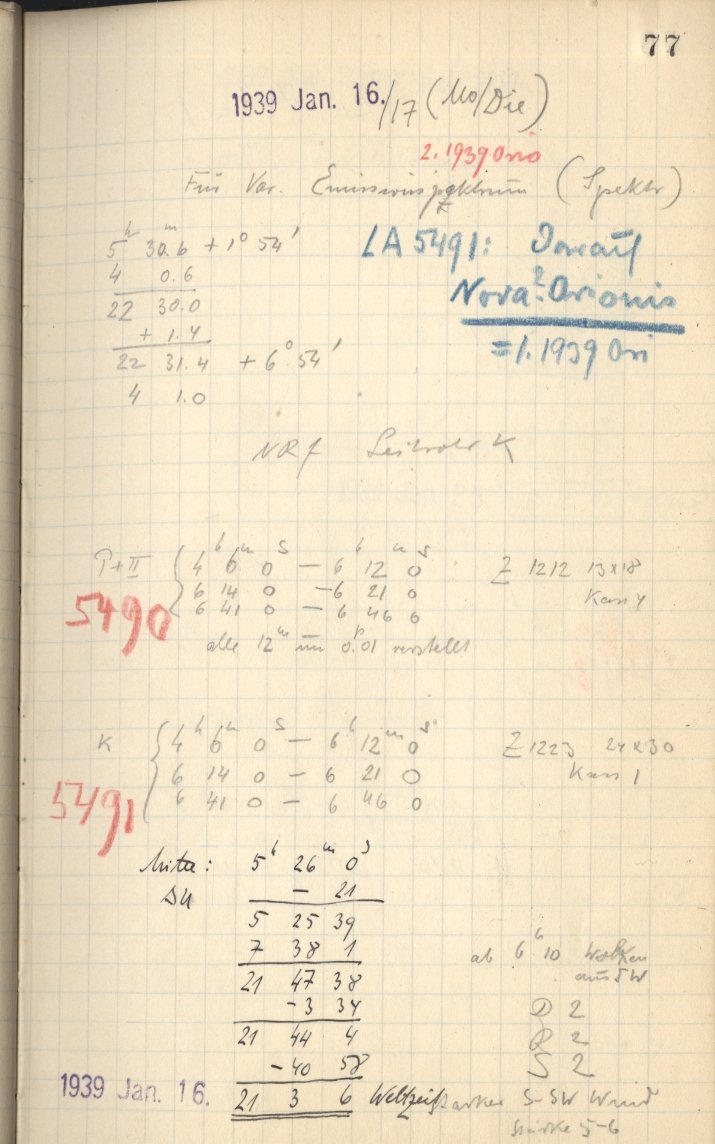 77
1939 Jan. 16./17 (Mo/Die)
2.1939 Orio
Für Var. Emissionsspektrum (Spektr)
5h 30.6m + 1° 54'
LA 5491: Darauf
4 0.6
Nova? Orionis
22 30.0
+ 1.4
= 1.1939 Ori
22 31.4 + 6° 54'
4 1.0
NRf Leitrohr K
P+II 4h 6m 0s — 6h 12m 0s Z 1212 13x18
6 14 0 — 6 21 0 Kass 4
5490
6 41 0 — 6 46 0
alle 12m um 0.P01 verstellt
K 4h 6m 0s — 6h 12m 0s Z 1223 24x30
6 14 0 — 6 21 0 Kass 1
5491
6 41 0 — 6 46 0
Mitte: 5h 26m 0s
ΔU — 21
5 25 39
7 38 1
ab 6h 10 Wolken
aus SW
21 47 38
-3 34
D 2
21 44 4
R 2
-40 58
S 2
1939 Jan. 16.
21 3 6 Weltzeit
starker S-SW Wind
Stärke 5-6